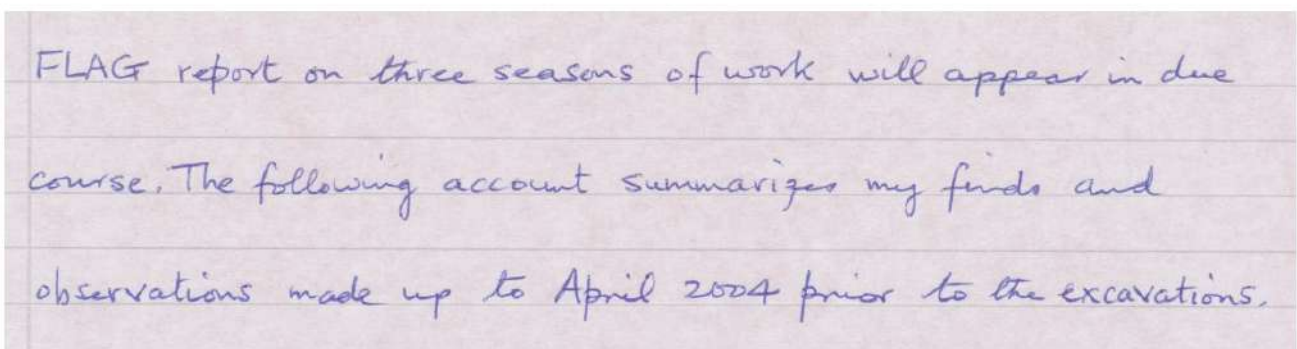 FLAG report on three seasons of work will appear in due
course. The following account summarizes my finds and
observations made up to April 2004 prior to the excavations.